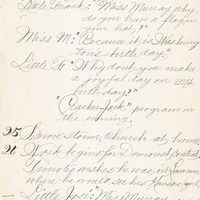 Little Frank: "Miss Murray why
do you have a flag in
your hat?"
Miss M: "Because it is Washing
ton's birthday."
Little F: Why don't you make
a joyful day on my
birthday?"
"Cracker Jack" program in
the evening.
25 Snow storm, Church at home.
26 Work begins for Demorest Contest.
wishes he was in
where he would see
Little Joe: "Miss Murray